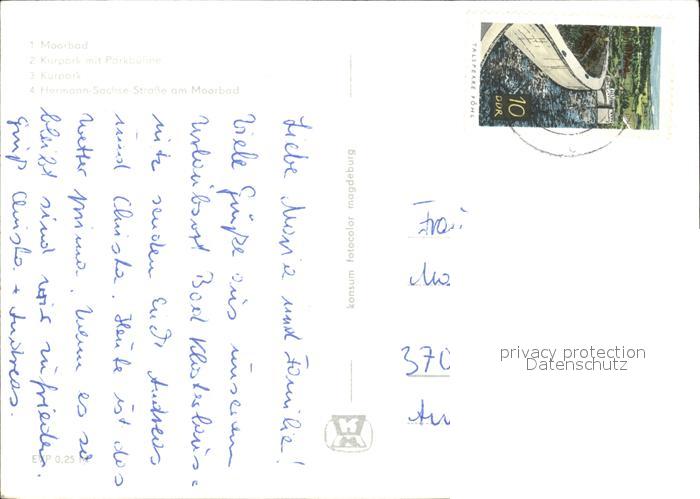 1 Moorbad
2 Kurpark mit Parkbühne
3 Kurpark
4 Hermann-Sachse-Straße am Moorbad
TALSPERRE PÖHL
10
DDR
Liebe Maria und Familie!
Viele Grüße aus unserem
Urlaubsort Bad Klosterlaus-
nitz senden Euch Andreas
und Christa. Heute ist das
Wetter prima. Wenn es so
bleibt sind wir zufrieden.
Gruß Christa + Andreas.
konsum fotocolor magdeburg
EVP 0,25 M
Frau
Ma
370
privacy protection
Datenschutz